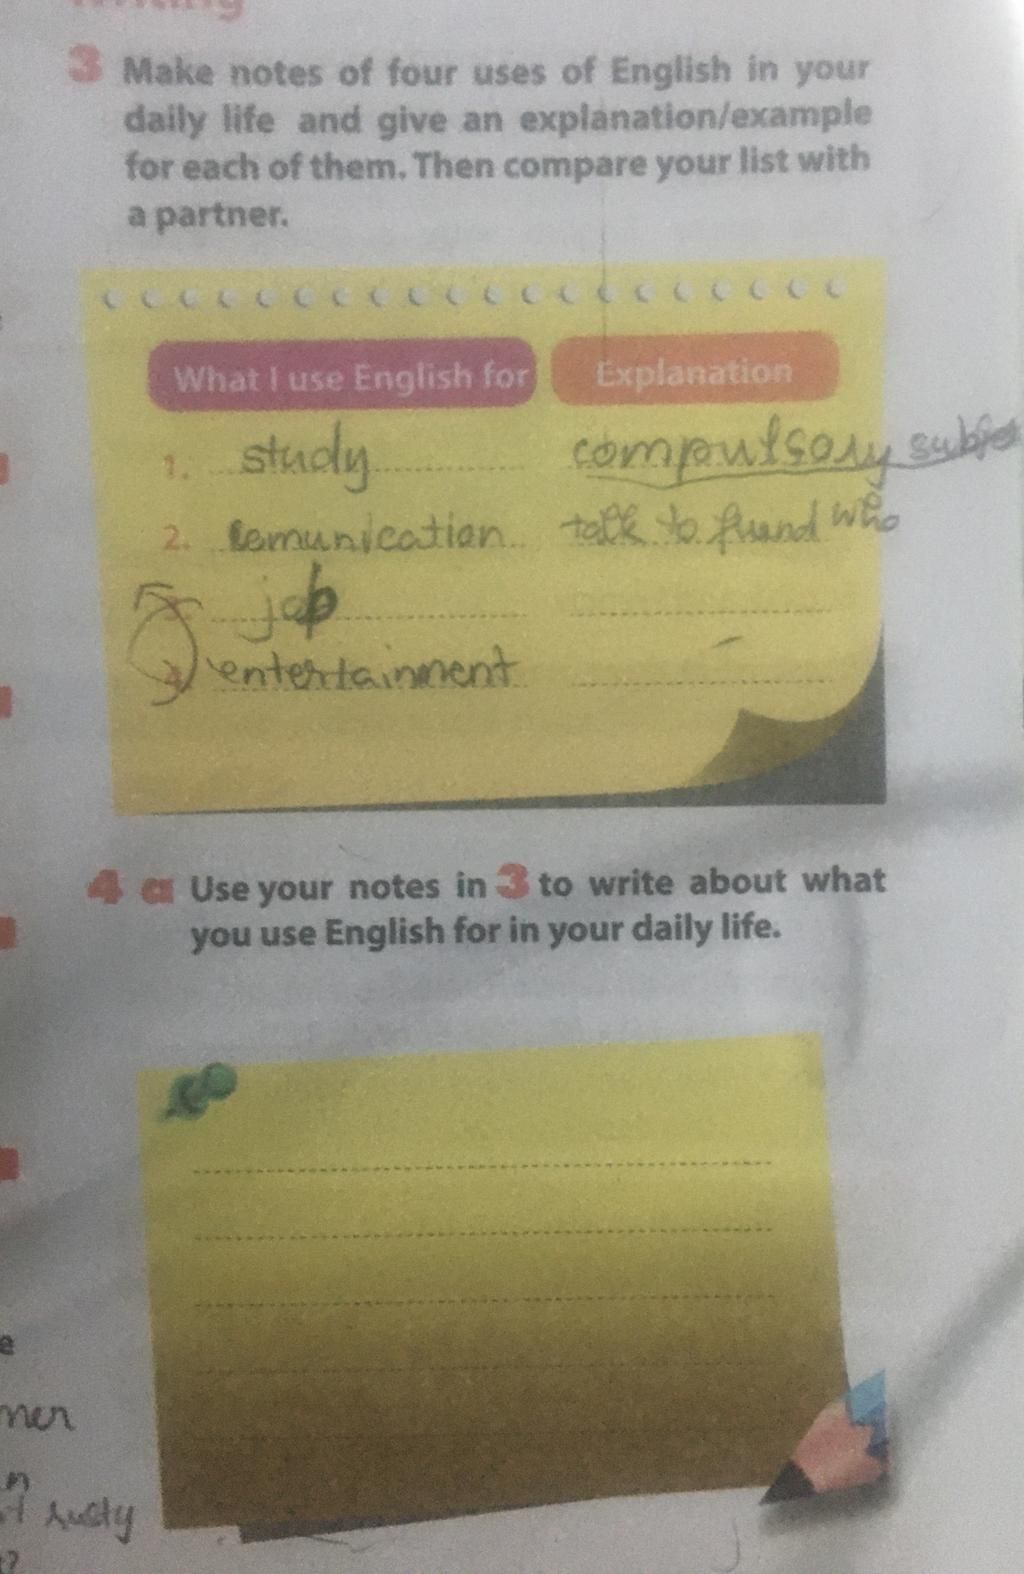 3 Make notes of four uses of English in your
daily life and give an explanation/example
for each of them. Then compare your list with
a partner.
What I use English for Explanation
1. study compulsory
2. comunication talk to friend who
job
4. entertainment
4 a Use your notes in 3 to write about what
you use English for in your daily life.
e
mer
n
rusty
?